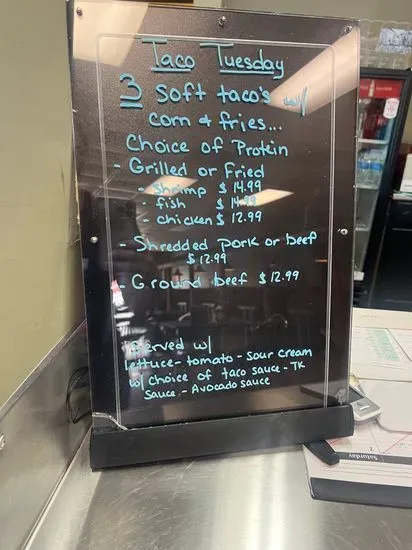 Taco Tuesday
3 Soft taco's w/
corn & fries...
Choice of Protein
- Grilled or Fried
- Shrimp $14.99
- fish $14.99
- chicken $12.99
- Shredded pork or beef
$12.99
- Ground beef $12.99
Served w/
lettuce - tomato - Sour cream
w/ choice of taco sauce - TK
Sauce - Avocado sauce
Saturday
2